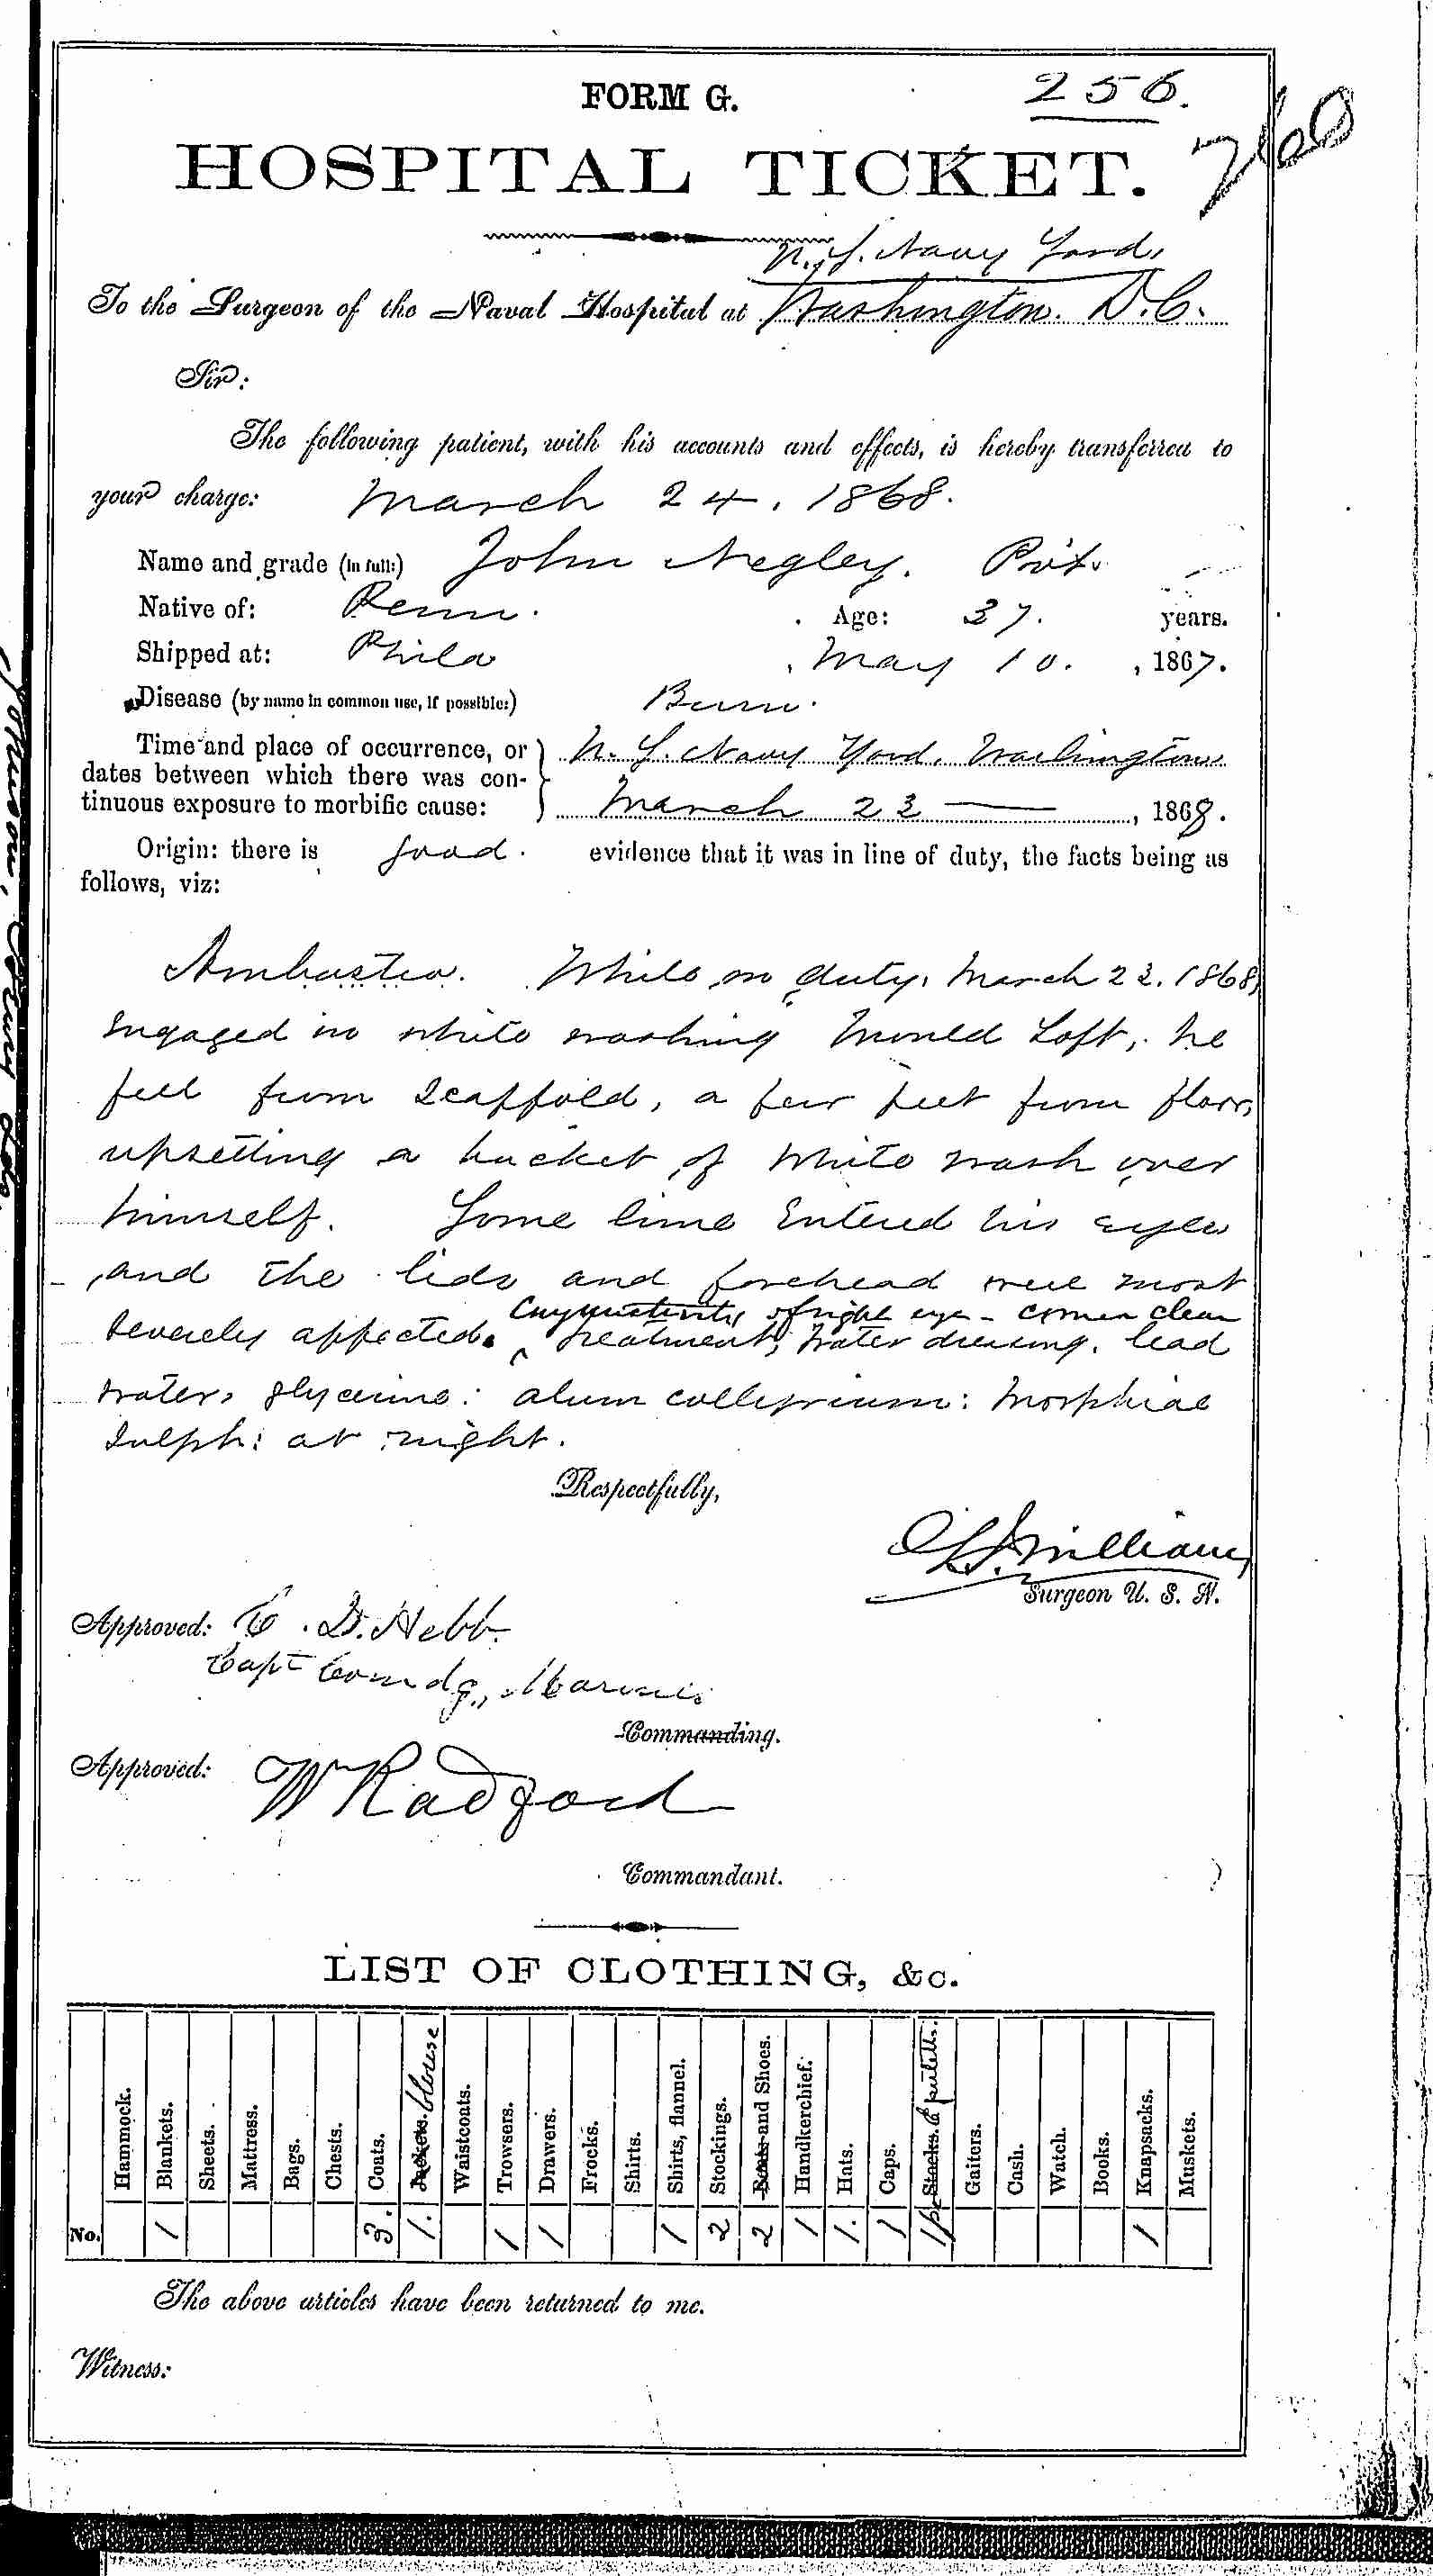 FORM G.
256.
760
HOSPITAL TICKET.
U. S. Navy Yard,
To the Surgeon of the Naval Hospital at Washington. D.C.
Sir:
The following patient, with his accounts and effects, is hereby transferred to
your charge: March 24, 1868.
Name and grade (in full:) John Negley. Pvt.
Native of: Penn. Age: 37. years.
Shipped at: Phila , May 10. , 1867.
Disease (by name in common use, if possible:) Burn.
Time and place of occurrence, or
dates between which there was con-
tinuous exposure to morbific cause:
U. S. Navy Yard, Washington
March 23 — , 1868.
Origin: there is good. evidence that it was in line of duty, the facts being as
follows, viz:
Ambustio. While on duty, March 23. 1868,
Engaged in white washing Mould Loft, he
fell from Scaffold, a few feet from floor,
upsetting a bucket of White wash over
himself. Some lime Entered his eyes
and the lids and forehead were most
Severely affected. Treatment; Water dressing. lead
of right eye - cornea clear
water, glycerine: alum collyrium: Morphiae
Sulph: at night.
Respectfully,
Surgeon U. S. N.
Approved: C. D. Hebb
Capt Comdg., Marines
Commanding.
Approved: W Radford
Commandant.
LIST OF CLOTHING, &c.
Hammock. Blankets. Sheets. Mattress. Bags. Chests. Coats. Jackets. blouse Waistcoats. Trowsers. Drawers. Frocks. Shirts. Shirts, flannel. Stockings. Boots and Shoes. Handkerchief. Hats. Caps. Stocks. Gaiters. Cash. Watch. Books. Knapsacks. Muskets.
No. 1 3. 1. 1 1 1 2 2 1 1. 1 1 1
The above articles have been returned to me.
Witness: